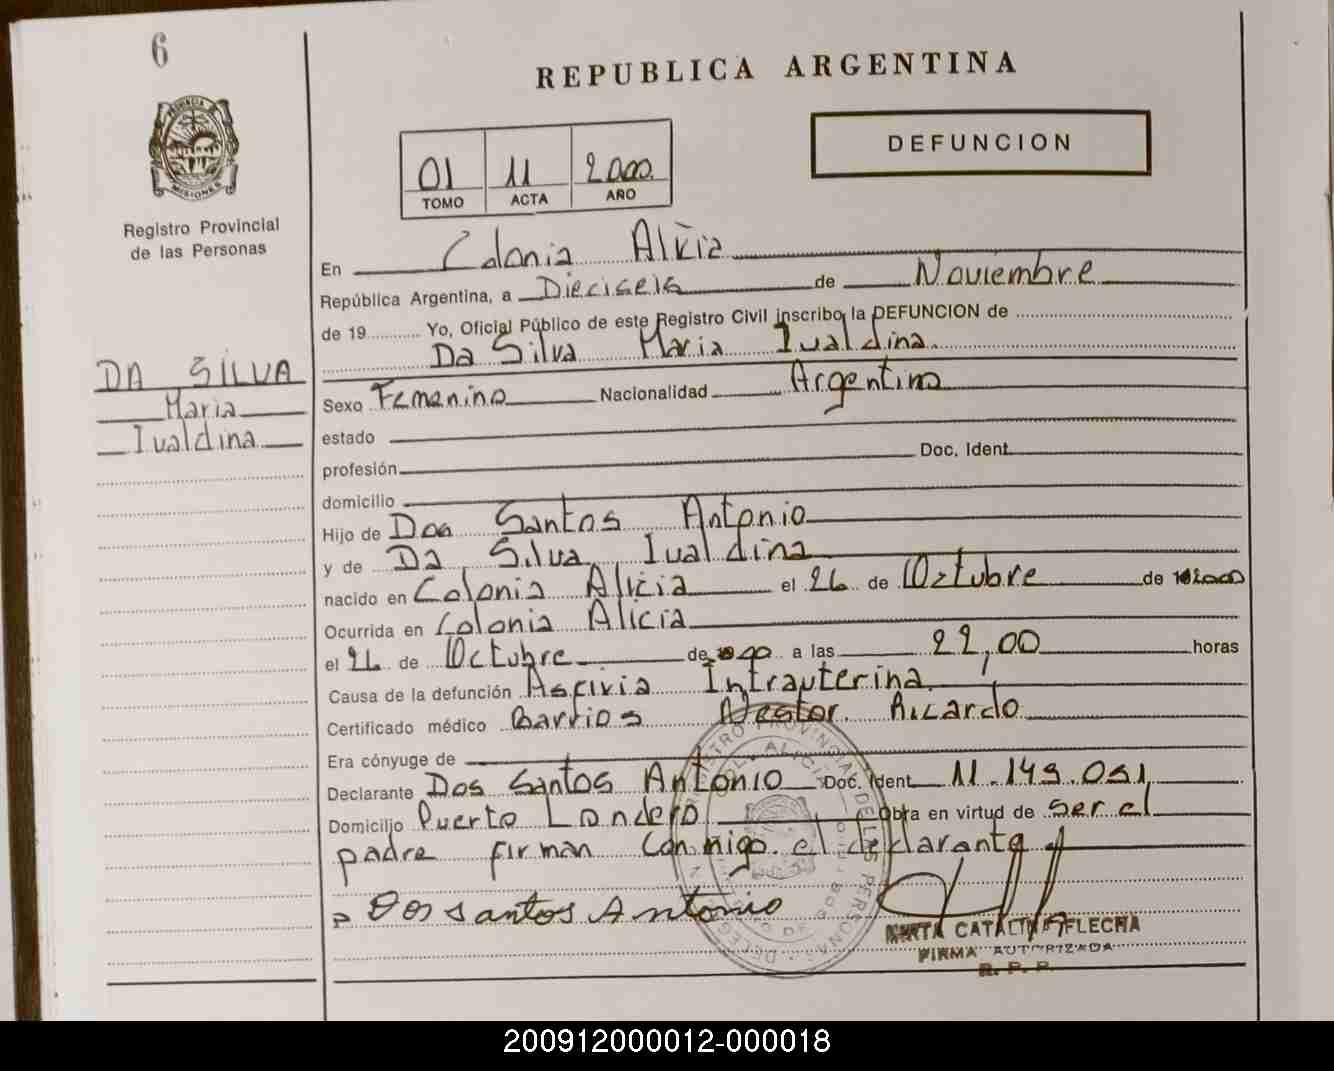 6
REPUBLICA ARGENTINA
DEFUNCION
01 11 2000
TOMO ACTA AÑO
PROVINCIA DE MISIONES
Registro Provincial
de las Personas
En Colonia Alicia
República Argentina, a Dieciseis de Noviembre
de 19 Yo, Oficial Público de este Registro Civil inscribo la DEFUNCION de
Da Silva Maria Iualdina
DA SILVA
Maria
Iualdina
Sexo Femenino Nacionalidad Argentina
estado
profesión Doc. Ident.
domicilio
Hijo de Dos Santos Antonio
y de Da Silva Iualdina
nacido en Colonia Alicia el 26 de Octubre de 2000
Ocurrida en Colonia Alicia
el 26 de Octubre de a las 22,00 horas
Causa de la defunción Asfixia Intrauterina
Certificado médico Barrios Nestor Ricardo
Era cónyuge de
Declarante Dos Santos Antonio Doc. Ident. 11.149.051
Domicilio Puerto Londero Obra en virtud de ser el
padre firman conmigo el declarante
Dos santos Antonio
MARTA CATALINA FLECHA
FIRMA AUTORIZADA
R. P. P.
200912000012-000018